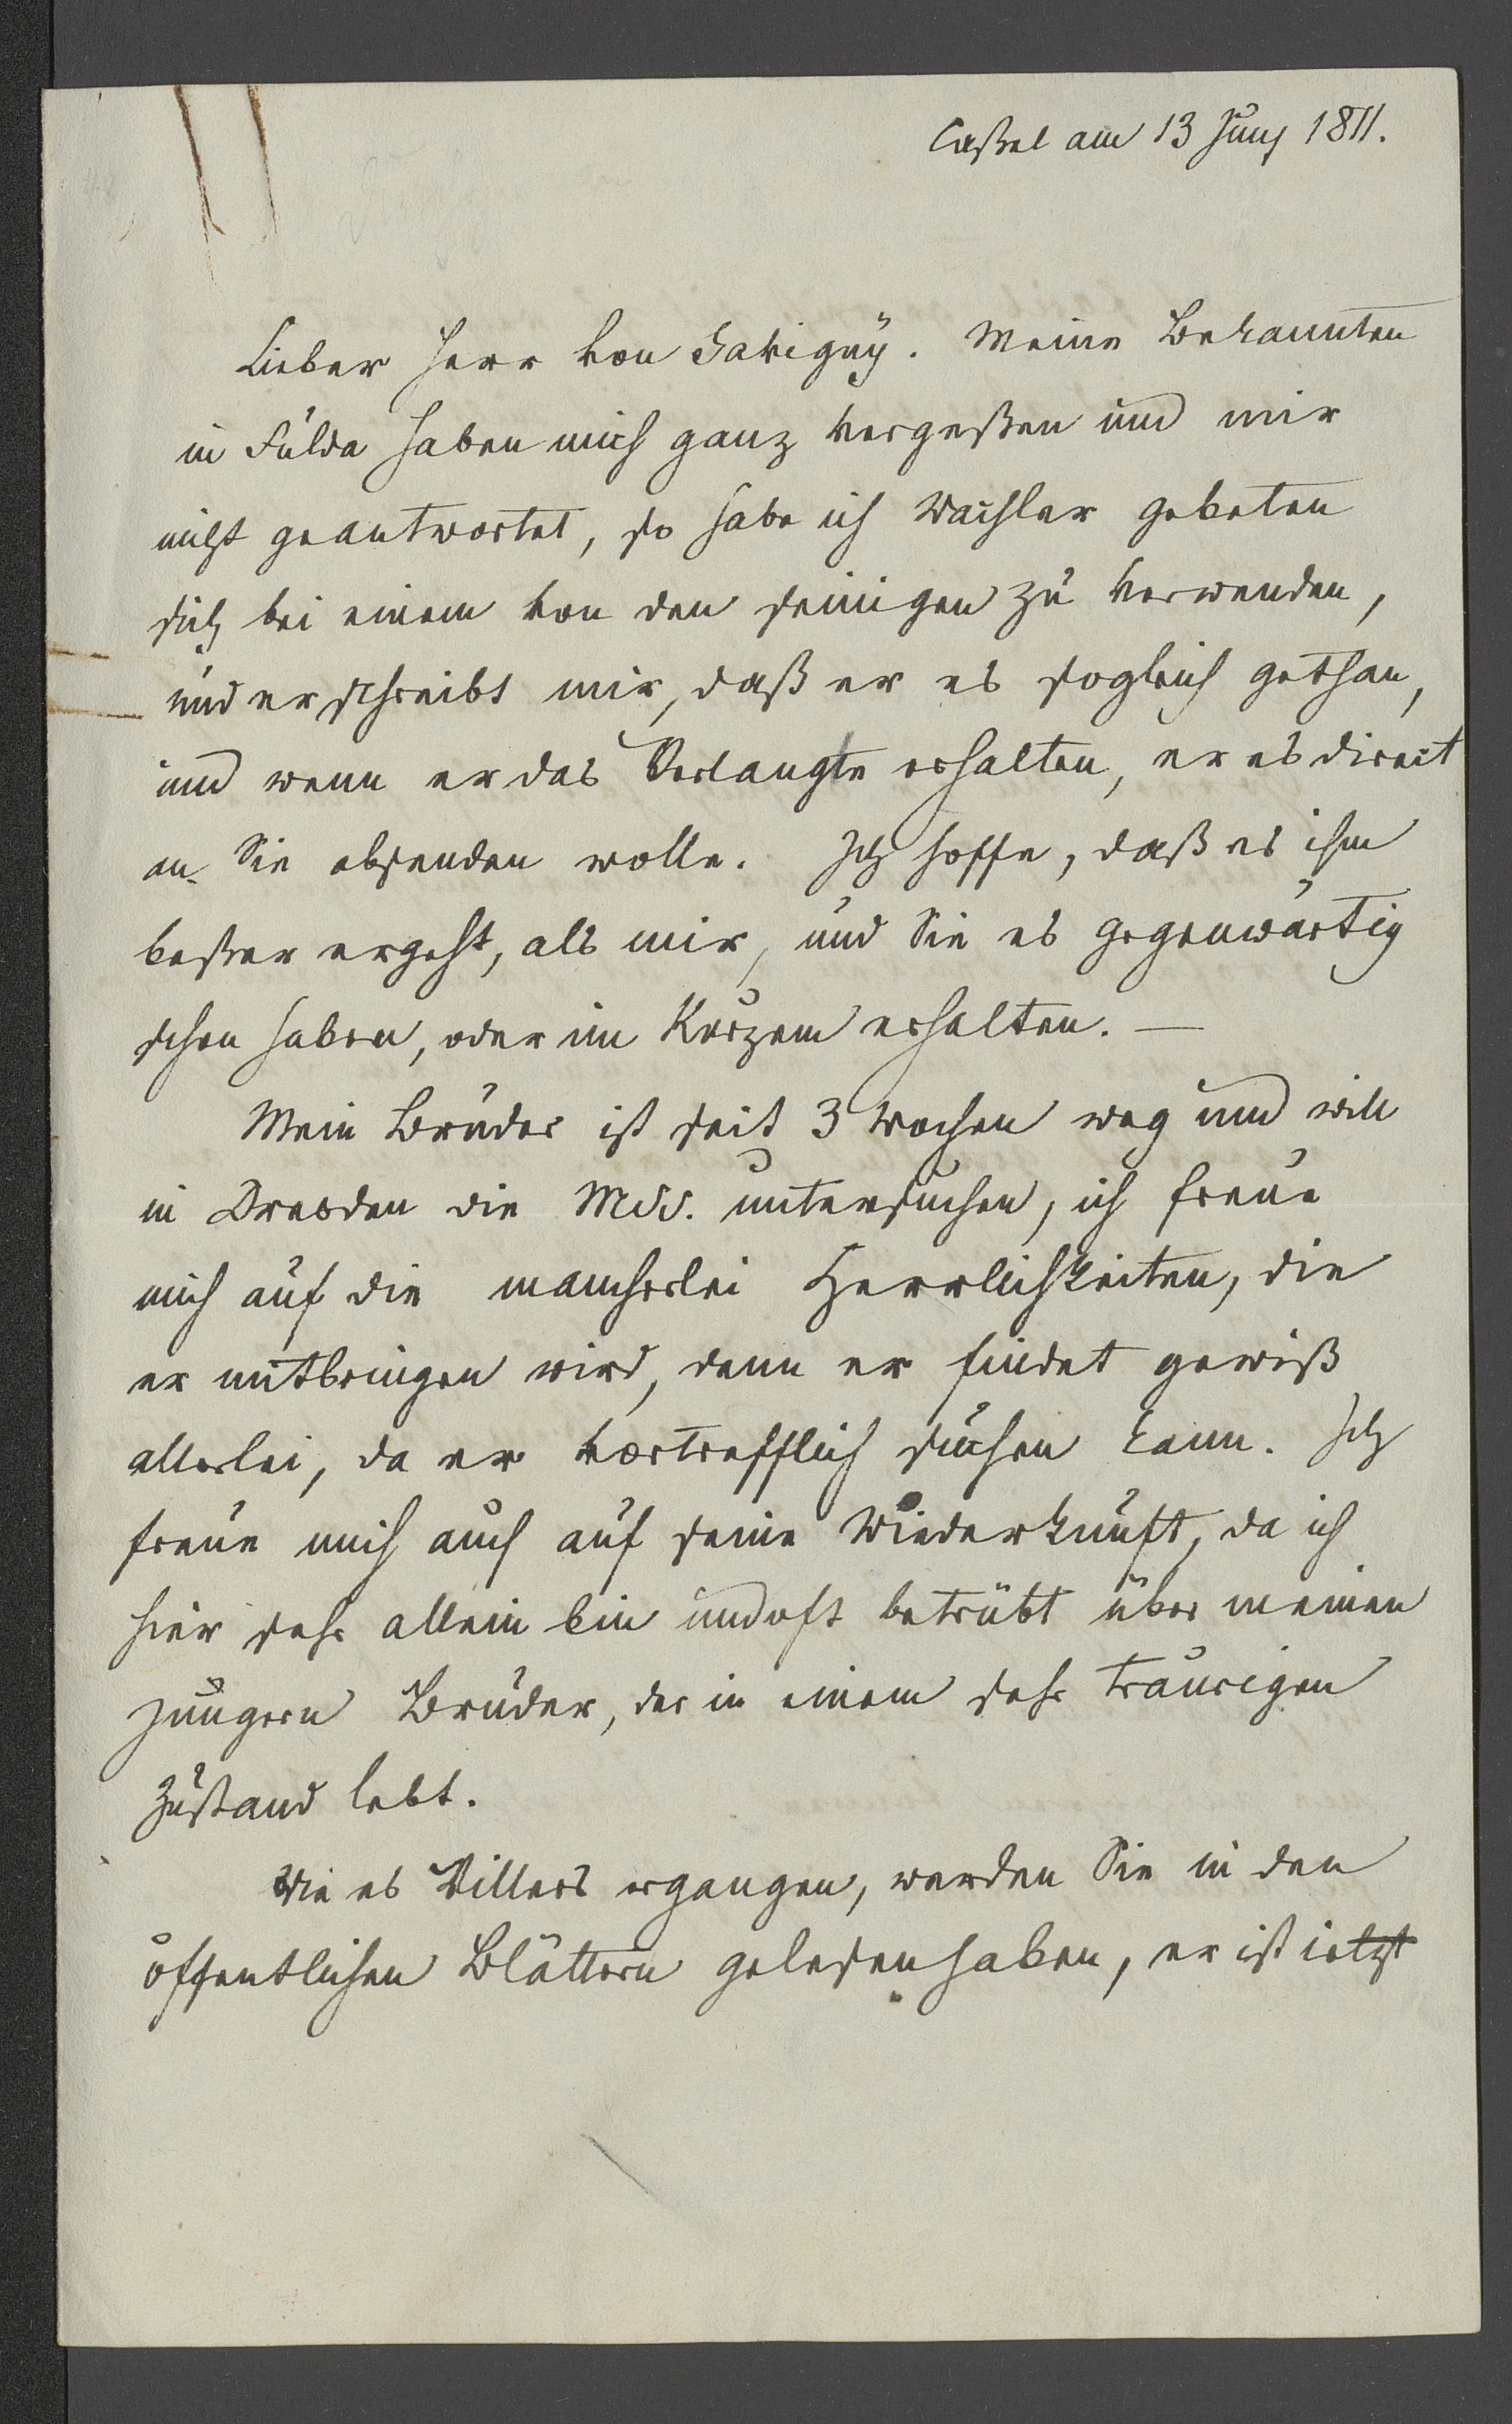 Caßel am 13 Juny 1811.
Lieber Herr von Savigny. Meine Bekannten
in Fulda haben mich ganz vergeßen und mir
nicht geantwortet, so habe ich Wachler gebeten
sich bei einem von den seinigen zu verwenden,
und er schreibt mir, daß er es sogleich gethan,
und wenn er das Verlangte erhalten, er es direct
an Sie absenden wolle. Ich hoffe, daß es ihm
beßer ergeht, als mir, und Sie es gegenwärtig
schon haben, oder in Kurzem erhalten. —
Mein Bruder ist seit 3 Wochen weg und will
in Dresden die Mss. untersuchen, ich freue
mich auf die mancherlei Herrlichkeiten, die
er mitbringen wird, denn er findet gewiß
allerlei, da er vortrefflich suchen kann. Ich
freue mich auch auf seine Wiederkunft, da ich
hier sehr allein bin und oft betrübt über meinen
jüngern Bruder, der in einem sehr traurigen
Zustand lebt.
Wie es Villers ergangen, werden Sie in den
öffentlichen Blättern gelesen haben, er ist ietzt